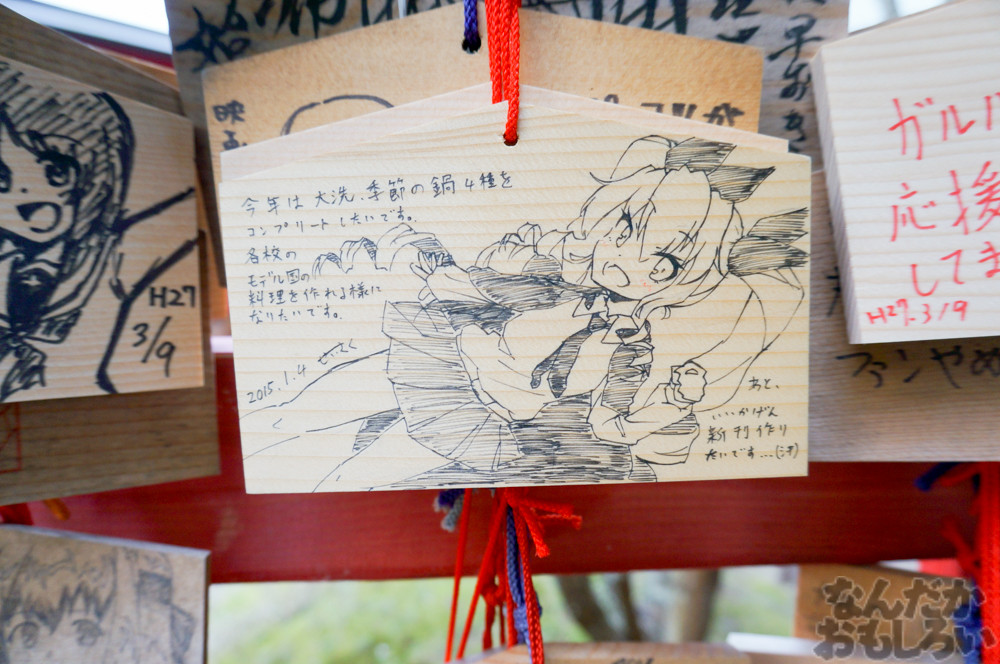 今年は大洗、季節の鍋4種を
コンプリートしたいです。
各校の
モデル国の
料理を作れる様に
なりたいです。
2015.1.4 せいさく
あと、
いいかげん
新刊作り
たいです…(汗)
H27
3/9
ガルパ
応援
してま
H27.3/9
ファンやめ
なんだか
おもしろい